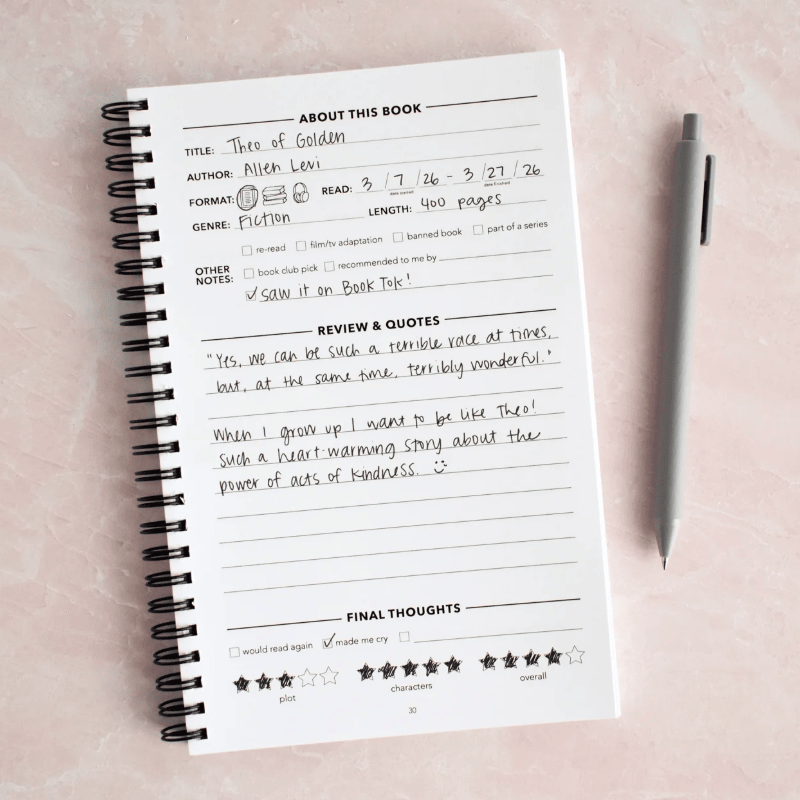 ABOUT THIS BOOK
TITLE: Theo of Golden
AUTHOR: Allen Levi
FORMAT: READ: 3 / 7 / 26 - 3 / 27 / 26
date started date finished
GENRE: Fiction LENGTH: 400 pages
re-read film/tv adaptation banned book part of a series
OTHER NOTES: book club pick recommended to me by
saw it on Book Tok!
REVIEW & QUOTES
"Yes, we can be such a terrible race at times,
but, at the same time, terribly wonderful."
When I grow up I want to be like Theo!
such a heart-warming story about the
power of acts of kindness.
FINAL THOUGHTS
would read again made me cry
plot characters overall
30